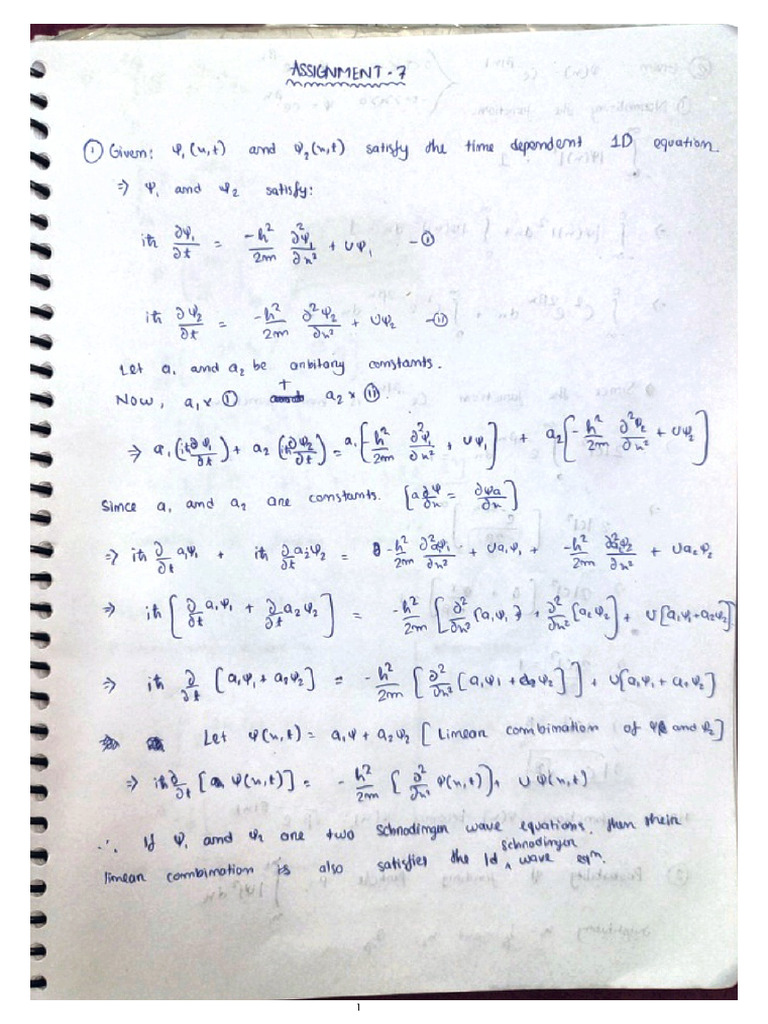 ASSIGNMENT - 7
① Given: ψ₁(x,t) and ψ₂(x,t) satisfy the time dependent 1D equation.
⇒ ψ₁ and ψ₂ satisfy:
iħ ∂ψ₁/∂t = -ħ²/2m ∂²ψ₁/∂x² + Uψ₁ —Ⓘ
iħ ∂ψ₂/∂t = -ħ²/2m ∂²ψ₂/∂x² + Uψ₂ —Ⓘⓘ
Let a₁ and a₂ be arbitary constants.
Now, a₁ × Ⓘ + a₂ × Ⓘⓘ
⇒ a₁(iħ∂ψ₁/∂t) + a₂(iħ∂ψ₂/∂t) = a₁[-ħ²/2m ∂²ψ₁/∂x² + Uψ₁] + a₂[-ħ²/2m ∂²ψ₂/∂x² + Uψ₂]
Since a₁ and a₂ are constants. [a∂ψ/∂x = ∂ψa/∂x]
⇒ iħ ∂/∂t a₁ψ₁ + iħ ∂/∂t a₂ψ₂ = -ħ²/2m ∂²a₁ψ₁/∂x² + Ua₁ψ₁ + -ħ²/2m ∂²a₂ψ₂/∂x² + Ua₂ψ₂
⇒ iħ[∂/∂t a₁ψ₁ + ∂/∂t a₂ψ₂] = -ħ²/2m [∂²/∂x² [a₁ψ₁] + ∂²/∂x² [a₂ψ₂]] + U[a₁ψ₁+a₂ψ₂]
⇒ iħ ∂/∂t [a₁ψ₁ + a₂ψ₂] = -ħ²/2m [∂²/∂x² [a₁ψ₁ + a₂ψ₂]] + U[a₁ψ₁ + a₂ψ₂]
Let ψ(x,t) = a₁ψ + a₂ψ₂ [Linear combination of ψ₁ and ψ₂]
⇒ iħ∂/∂t [ψ(x,t)] = -ħ²/2m [∂²/∂x² ψ(x,t)] + Uψ(x,t)
∴ If ψ₁ and ψ₂ are two schrodinger wave equations. then their
linear combination is also satisfies the 1d schrodinger wave eqn.
1